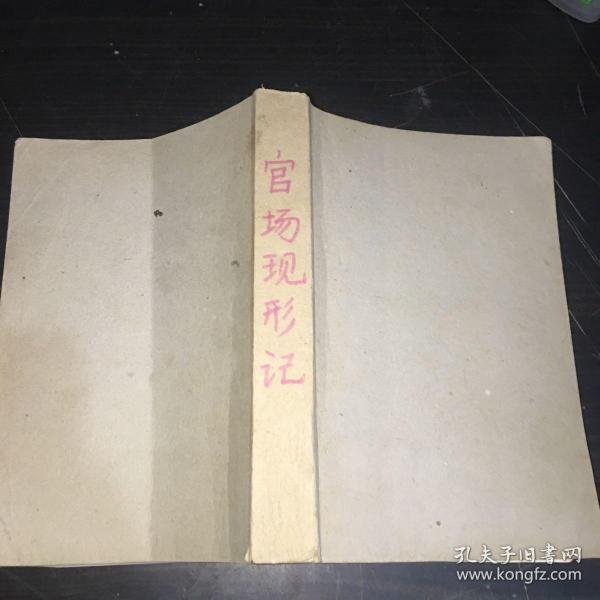 官场现形记
孔夫子旧書网
www.kongfz.com